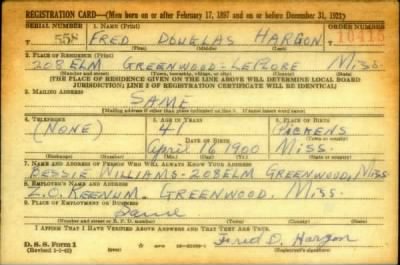 REGISTRATION CARD—(Men born on or after February 17, 1897 and on or before December 31, 1921)
SERIAL NUMBER 1. NAME (Print) ORDER NUMBER
T 558 FRED DOUGLAS HARGON
(First) (Middle) (Last)
2. PLACE OF RESIDENCE (Print)
208 ELM GREENWOOD - LEFLORE MISS.
(Number and street) (Town, township, village, or city) (County) (State)
[THE PLACE OF RESIDENCE GIVEN ON THE LINE ABOVE WILL DETERMINE LOCAL BOARD
JURISDICTION; LINE 2 OF REGISTRATION CERTIFICATE WILL BE IDENTICAL]
3. MAILING ADDRESS
SAME
[Mailing address if other than place indicated on line 2. If same insert word same]
4. TELEPHONE 5. AGE IN YEARS 6. PLACE OF BIRTH
(NONE) 41 PICKENS
DATE OF BIRTH (Town or county)
April 16 1900 MISS.
(Exchange) (Number) (Mo.) (Day) (Yr.) (State or country)
7. NAME AND ADDRESS OF PERSON WHO WILL ALWAYS KNOW YOUR ADDRESS
BESSIE WILLIAMS - 208 ELM GREENWOOD, MISS.
8. EMPLOYER'S NAME AND ADDRESS
L.C. KEENUM. GREENWOOD, MISS.
9. PLACE OF EMPLOYMENT OR BUSINESS
Same
(Number and street or R. F. D. number) (Town) (County) (State)
I AFFIRM THAT I HAVE VERIFIED ABOVE ANSWERS AND THAT THEY ARE TRUE.
D. S. S. Form 1
(Revised 1-1-42) Fred D. Hargon
(Registrant's signature)